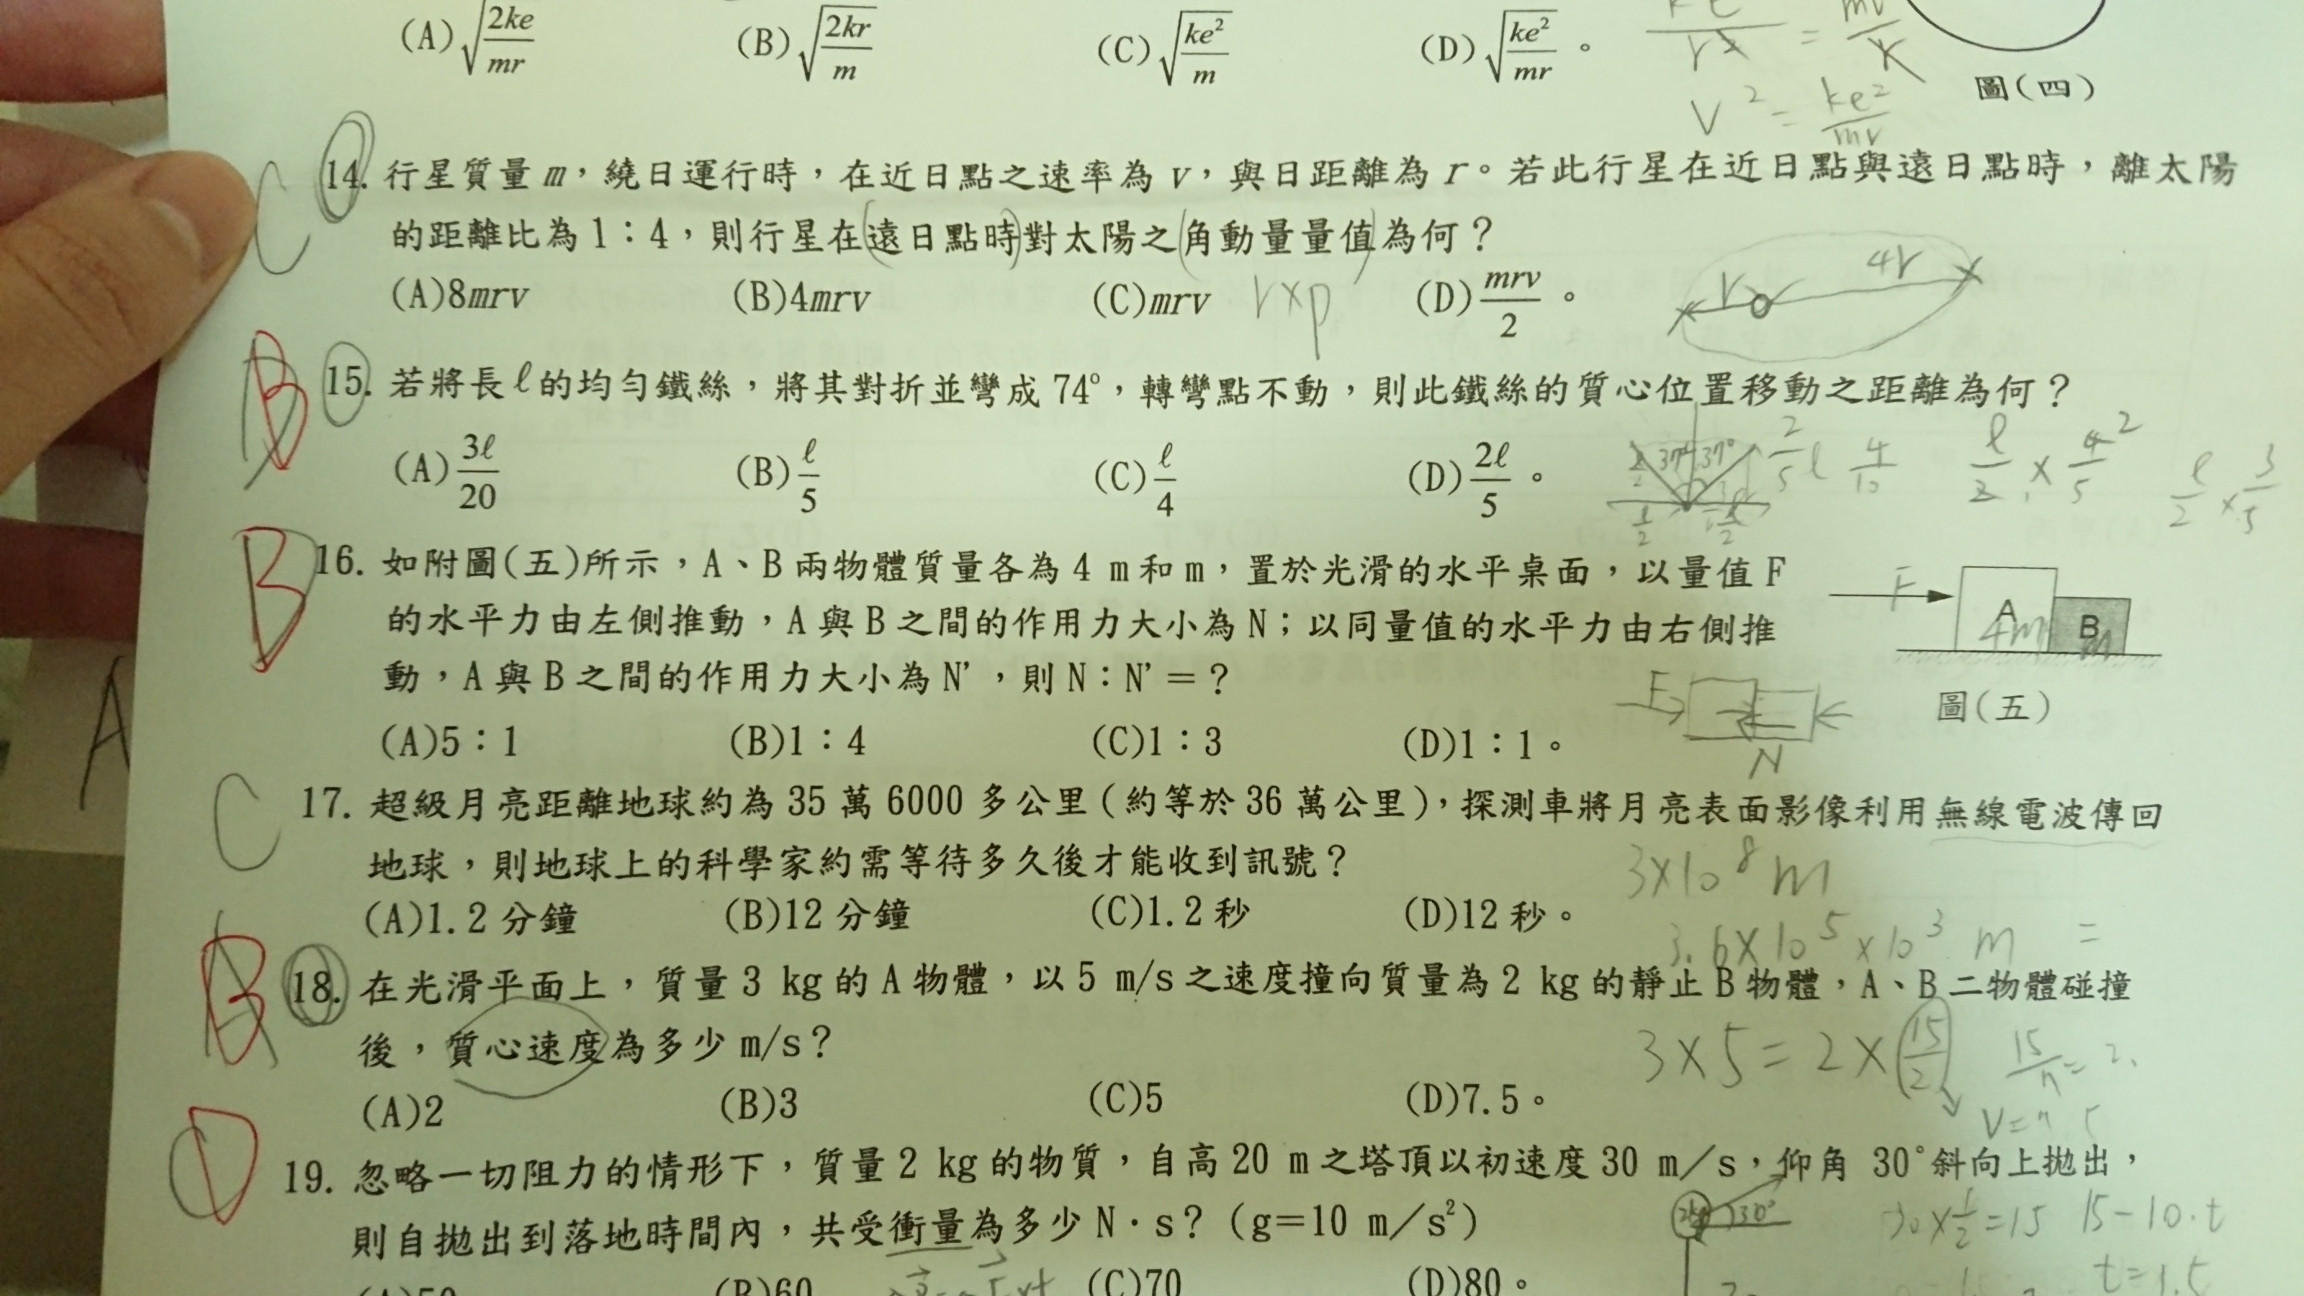 (A)√(2ke/mr) (B)√(2kr/m) (C)√(ke²/m) (D)√(ke²/mr)。
圖(四)
V² = ke²/mr
C 14. 行星質量 m，繞日運行時，在近日點之速率為 v，與日距離為 r。若此行星在近日點與遠日點時，離太陽
的距離比為 1：4，則行星在遠日點時對太陽之角動量量值為何？
(A)8mrv (B)4mrv (C)mrv (D)mrv/2。
r×p
r 4r
B 15. 若將長 ℓ 的均勻鐵絲，將其對折並彎成 74°，轉彎點不動，則此鐵絲的質心位置移動之距離為何？
(A)3ℓ/20 (B)ℓ/5 (C)ℓ/4 (D)2ℓ/5。
37° 37° 2/5 ℓ 4/10 ℓ/2 × 4/5 ℓ/2 × 3/5
B 16. 如附圖(五)所示，A、B 兩物體質量各為 4 m 和 m，置於光滑的水平桌面，以量值 F
的水平力由左側推動，A 與 B 之間的作用力大小為 N；以同量值的水平力由右側推
動，A 與 B 之間的作用力大小為 N’，則 N：N’＝？
F A 4m B m
圖(五)
F N
(A)5：1 (B)1：4 (C)1：3 (D)1：1。
C 17. 超級月亮距離地球約為 35 萬 6000 多公里(約等於 36 萬公里)，探測車將月亮表面影像利用無線電波傳回
地球，則地球上的科學家約需等待多久後才能收到訊號？
3×10⁸ m
(A)1.2 分鐘 (B)12 分鐘 (C)1.2 秒 (D)12 秒。
3.6×10⁵×10³ m =
B 18. 在光滑平面上，質量 3 kg 的 A 物體，以 5 m/s 之速度撞向質量為 2 kg 的靜止 B 物體，A、B 二物體碰撞
後，質心速度為多少 m/s？
3×5=2×15/2
(A)2 (B)3 (C)5 (D)7.5。
D 19. 忽略一切阻力的情形下，質量 2 kg 的物質，自高 20 m 之塔頂以初速度 30 m／s，仰角 30°斜向上拋出，
則自拋出到落地時間內，共受衝量為多少 N‧s？(g＝10 m／s²)
30° 30×1/2=15 15-10.t
t=1.5
(A)50 (B)60 (C)70 (D)80。
A